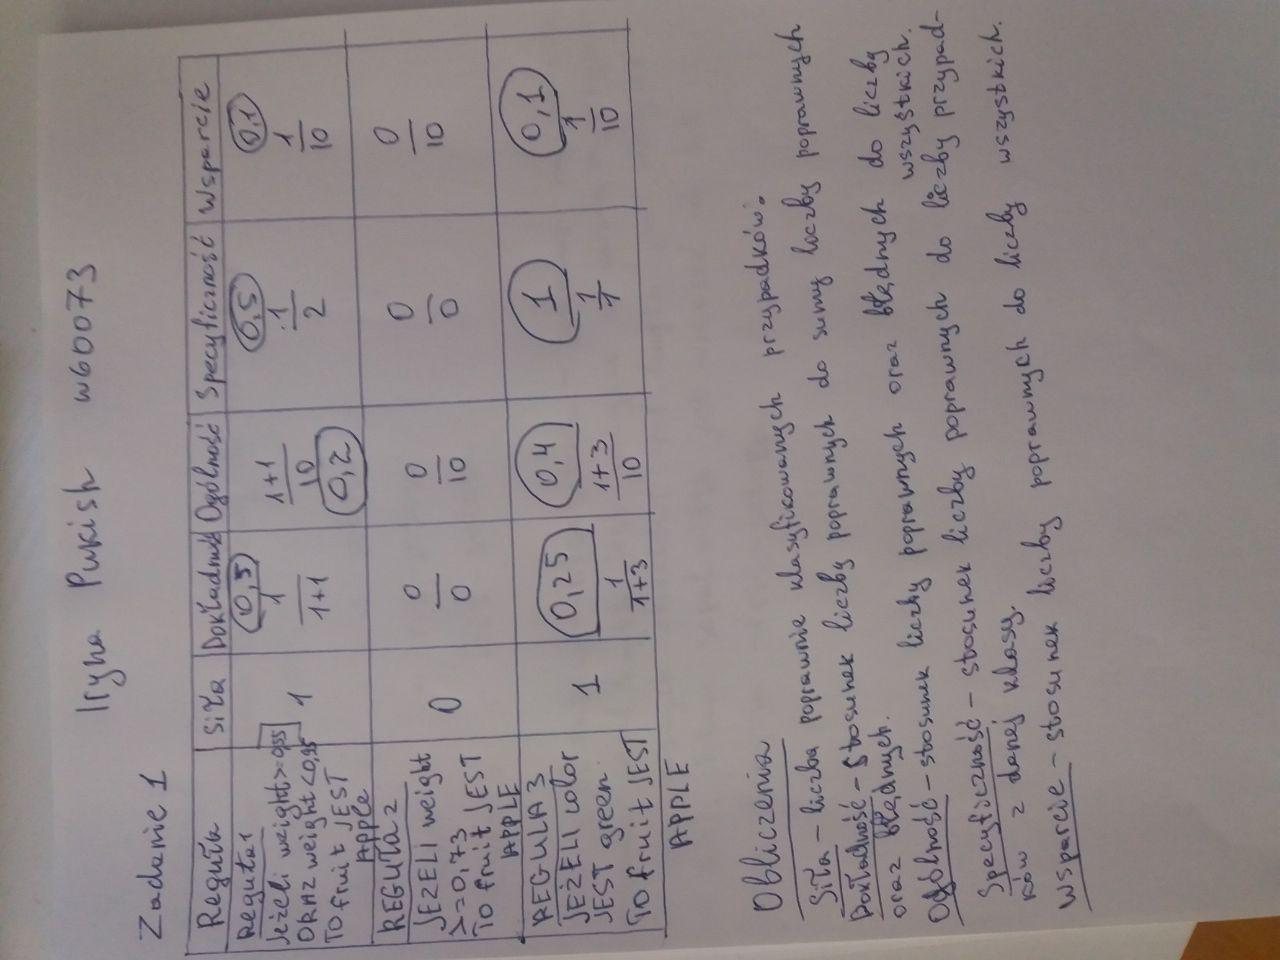 Iryna Pukish w60073
Zadanie 1
Reguła Siła Dokładność Ogólność Specyficzność Wsparcie
Reguła1
Jeżeli weight>=0,55
ORAZ weight<0,95
TO fruit JEST
APPle
1
0,5
1
1+1
1+1
10
0,2
0,5
1
2
0,1
1
10
REGUŁA 2
JEZELI weight
>=0,73
TO fruit JEST
APPLE
0
0
0
0
10
0
0
0
10
REGULA 3
JEŻELI color
JEST green
TO fruit JEST
APPLE
1
0,25
1
1+3
0,4
1+3
10
1
1
1
0,1
1
10
Obliczenia
Siła – liczba poprawnie klasyfikowanych przypadków.
Dokładność – stosunek liczby poprawnych do sumy liczby poprawnych
oraz błędnych.
Ogólność – stosunek liczby poprawnych oraz błędnych do liczby
wszystkich.
Specyficzność – stosunek liczby poprawnych do liczby przypad-
ków z danej klasy.
Wsparcie – stosunek liczby poprawnych do liczby wszystkich.